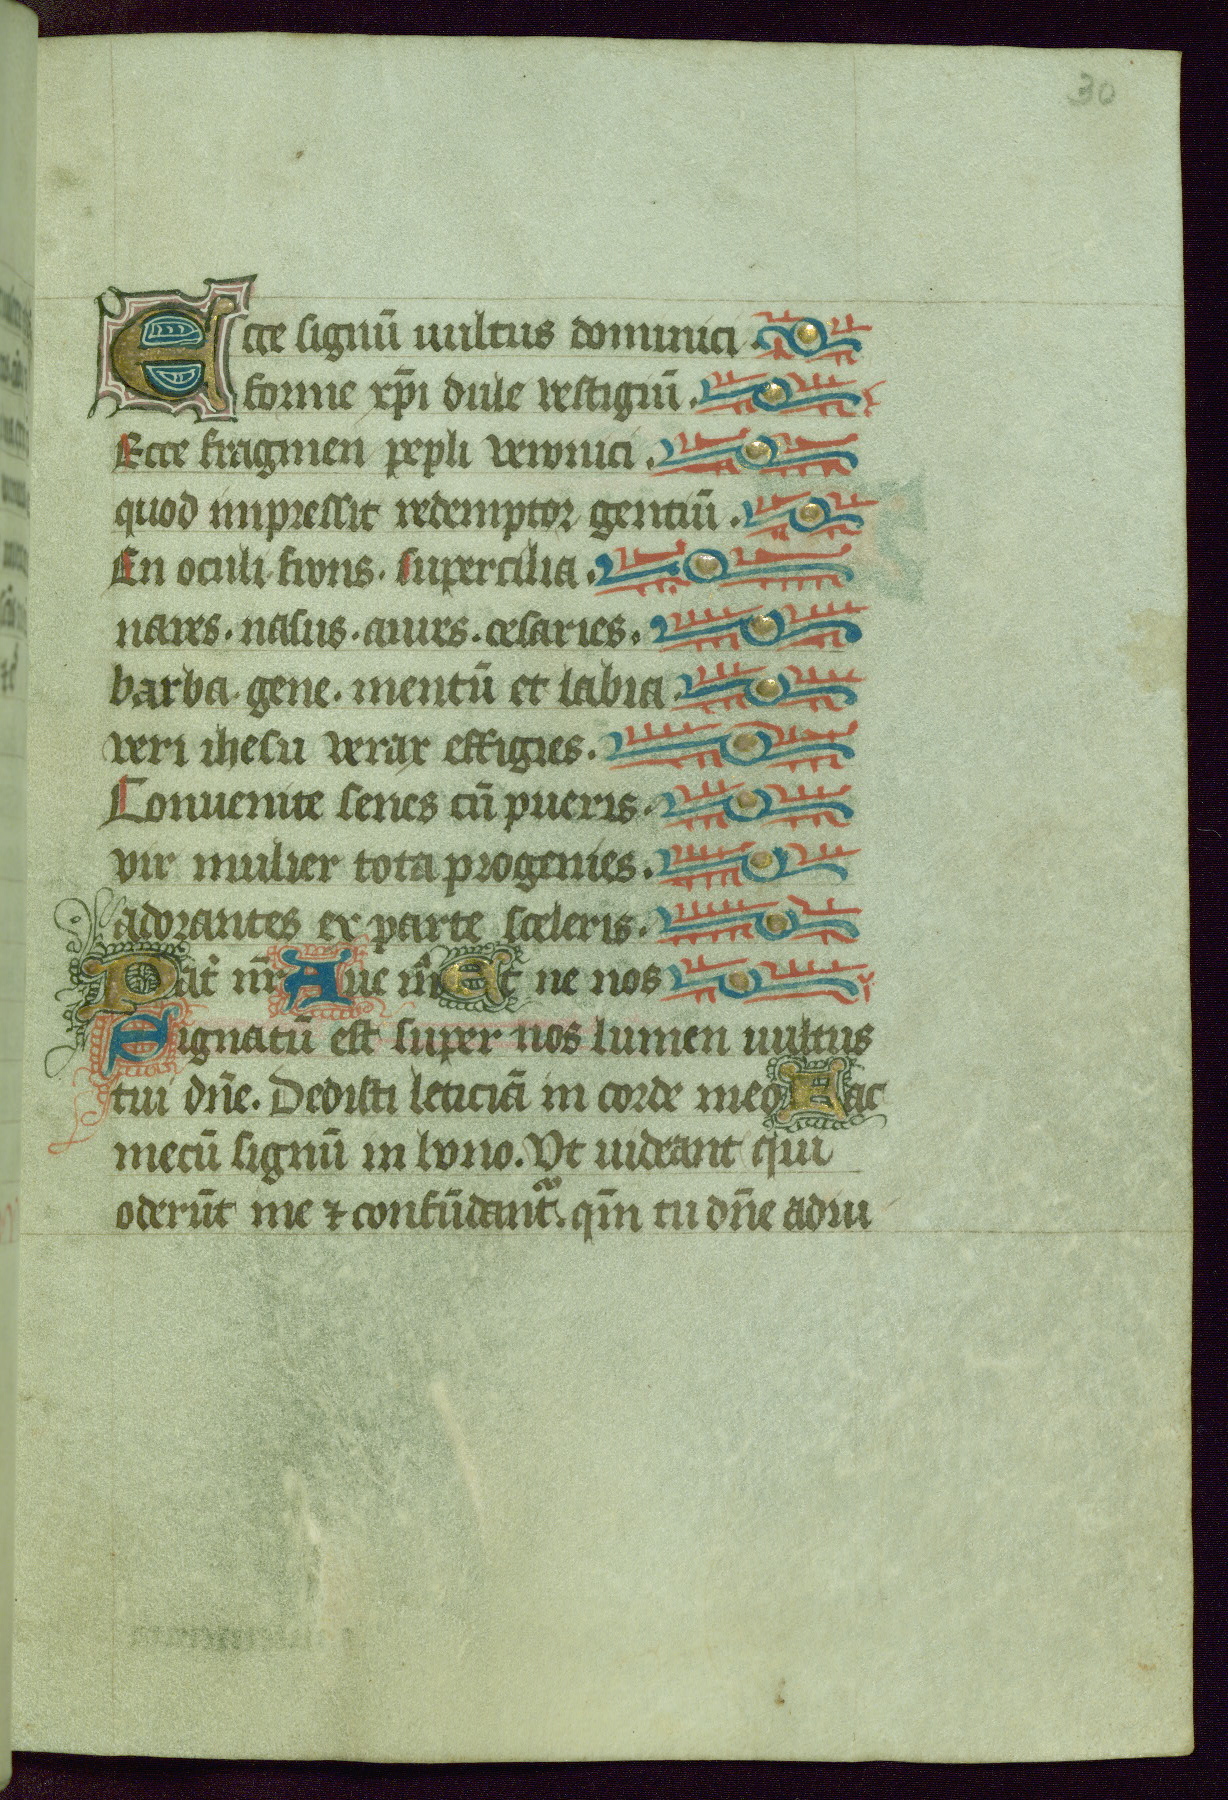 30
Ecce signū uultus dominici.
forme xp̄i dulce vestigiū.
Ecce fragmen pepli veronici.
quod impressit redemptor gentiū.
En oculi. frons. supercilia.
nares. nasus. aures. cesaries.
barba. gene. mentū et labia.
veri ihesu verax effigies.
Conuenite senes cū pueris.
vir mulier tota progenies.
adorantes ex parte sceleris.
Pat̄ nr̄ Aue m̄ Et ne nos
Signatū est super nos lumen uultus
tui dn̄e. Dedisti leticiā in corde meo Fac
mecū signū in bono. Vt uideant qui
oderūt me ⁊ confūdant᷑. qm̄ tu dn̄e adiu